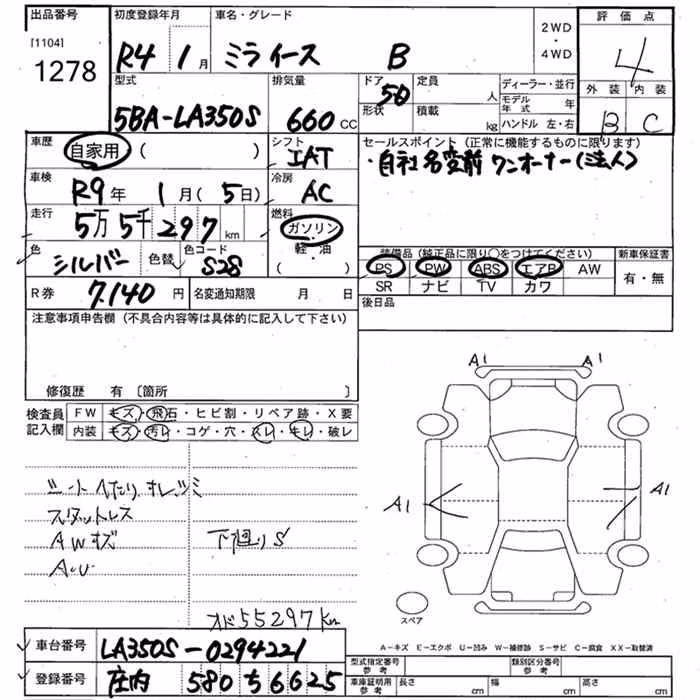 出品番号 初度登録年月 車名・グレード 2WD・4WD 評価点
[1104] 1278 R4 1月 ミライース B 4
型式 排気量 ドア 定員 ディーラー・並行 外装 内装
5BA-LA350S 660cc 5D 人 モデル年式 年 B C
形状 積載 kg ハンドル 左・右
車歴 自家用 ( ) シフト IAT セールスポイント (正常に機能するものに限ります)
・自社名変前 ワンオーナー(法人)
車検 R9年 1月(5日) 冷房 AC
走行 5万5千297km 燃料 ガソリン・軽・油 ( )
色 シルバー 色替 色コード S28 装備品 (純正品に限り○をつけてください) 新車保証書
PS PW ABS エアB AW 有・無
SR ナビ TV カワ
R券 7,140円 名変通知期限 月 日 後日品
注意事項申告欄 (不具合内容等は具体的に記入して下さい)
修復歴 有 〔箇所 〕
検査員記入欄 FW キズ・飛石・ヒビ割・リペア跡・X要
内装 キズ・汚レ・コゲ・穴・スレ・キレ・破レ
A1 A1
A1 A1
シートヘたり
スタットレス
AWキズ 下廻りS
オド55297km
スペア
A-キズ E-エクボ U-凹み W-補修跡 S-サビ C-腐食 XX-取替済
車台番号 LA350S-0294221
登録番号 庄内 580 ち 6625
型式指定番号 参考 類別区分番号 参考
車庫証明用 参考 長さ cm 幅 cm 高さ cm